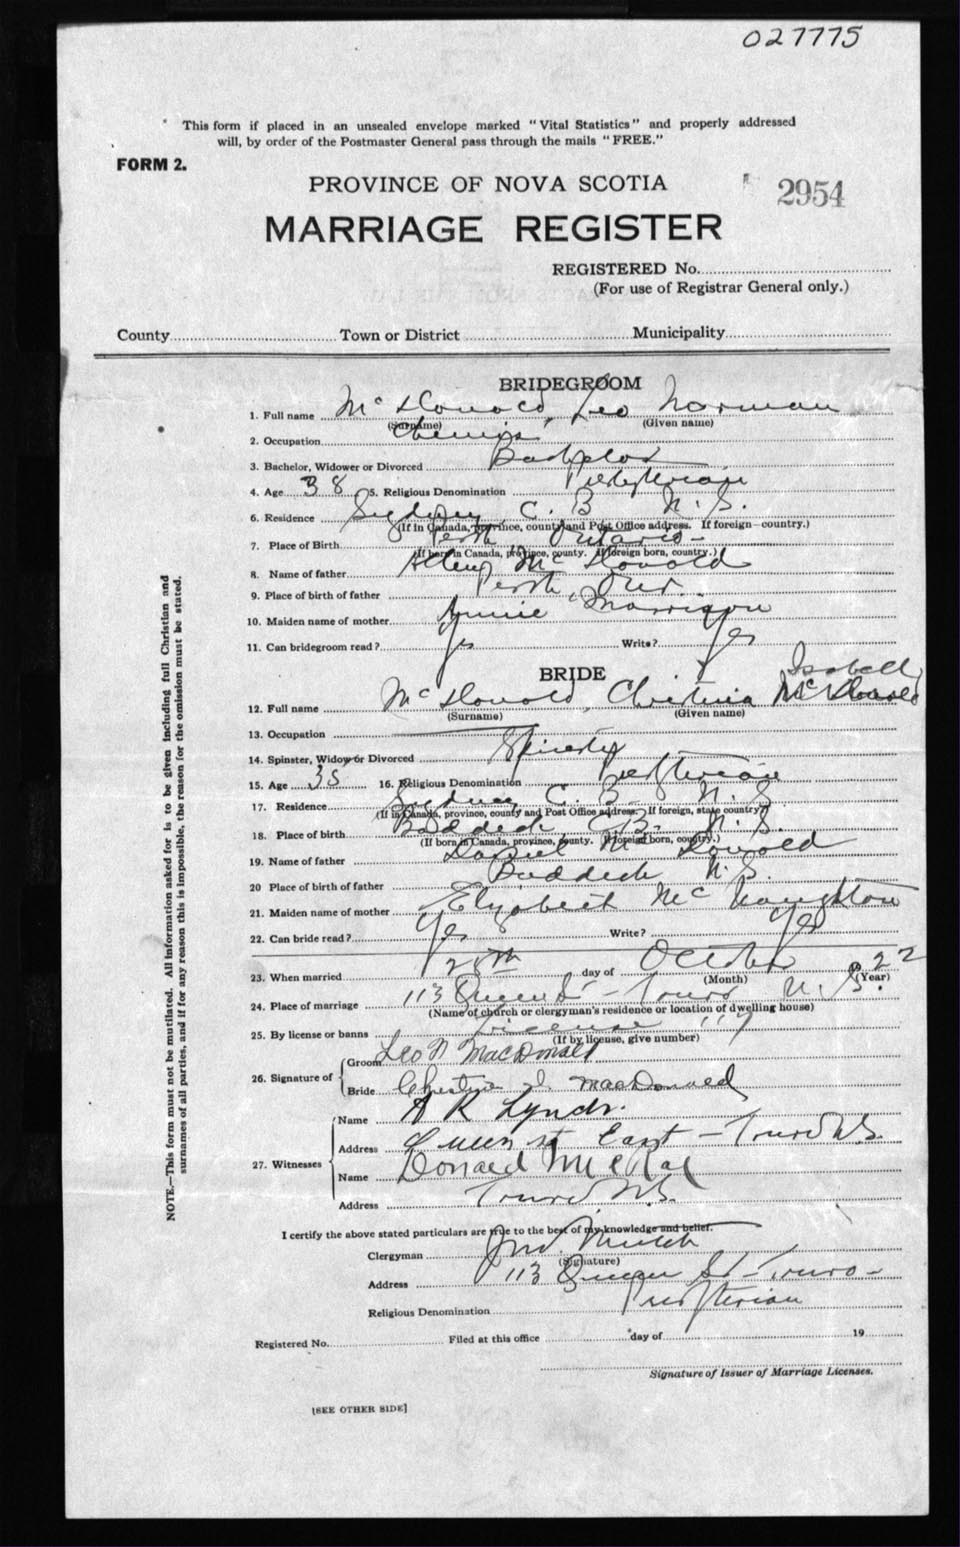 027775
This form if placed in an unsealed envelope marked "Vital Statistics" and properly addressed
will, by order of the Postmaster General pass through the mails "FREE."
FORM 2.
PROVINCE OF NOVA SCOTIA
2954
MARRIAGE REGISTER
REGISTERED No.
(For use of Registrar General only.)
County Town or District Municipality
BRIDEGROOM
1. Full name Mc Donald, Leo Norman
(Surname) (Given name)
2. Occupation Chemist
3. Bachelor, Widower or Divorced Bachelor
4. Age 38 5. Religious Denomination Presbyterian
6. Residence Sydney C. B. N. S.
(If in Canada, province, county and Post Office address. If foreign—country.)
7. Place of Birth Perth Ontario
(If born in Canada, province, county. If foreign born, country.)
8. Name of father Mc Donald
9. Place of birth of father Perth, Ont.
10. Maiden name of mother Annie Morrison
11. Can bridegroom read? Yes Write? Yes
BRIDE
Isabell
12. Full name Mc Donald, Christina McDonald
(Surname) (Given name)
13. Occupation
14. Spinster, Widow or Divorced Spinster
15. Age 35 16. Religious Denomination Presbyterian
17. Residence Sydney C. B. N. S.
(If in Canada, province, county and Post Office address. If foreign, state country)
18. Place of birth Baddeck C. B. N. S.
(If born in Canada, province, county. If foreign born, country.)
19. Name of father Daniel Mc Donald
20 Place of birth of father Baddeck N. S.
21. Maiden name of mother Elizabeth Mc Naughton
22. Can bride read? Yes Write? Yes
23. When married 25th day of October 1922
(Month) (Year)
24. Place of marriage 113 Queen St - Truro N. S.
(Name of church or clergyman's residence or location of dwelling house)
25. By license or banns License 117
(If by license, give number)
26. Signature of Groom Leo N MacDonald
Bride Christina I. MacDonald
27. Witnesses Name A R Lynds.
Address Queen st East - Truro N.S.
Name Donald McRae
Address Truro N.S.
I certify the above stated particulars are true to the best of my knowledge and belief.
Clergyman Jno. Mutch
(Signature)
Address 113 Queen St - Truro -
Religious Denomination Presbyterian
Registered No. Filed at this office day of 19
Signature of Issuer of Marriage Licenses.
[SEE OTHER SIDE]
NOTE.—This form must not be mutilated. All information asked for is to be given including full Christian and
surnames of all parties, and if for any reason this is impossible, the reason for the omission must be stated.